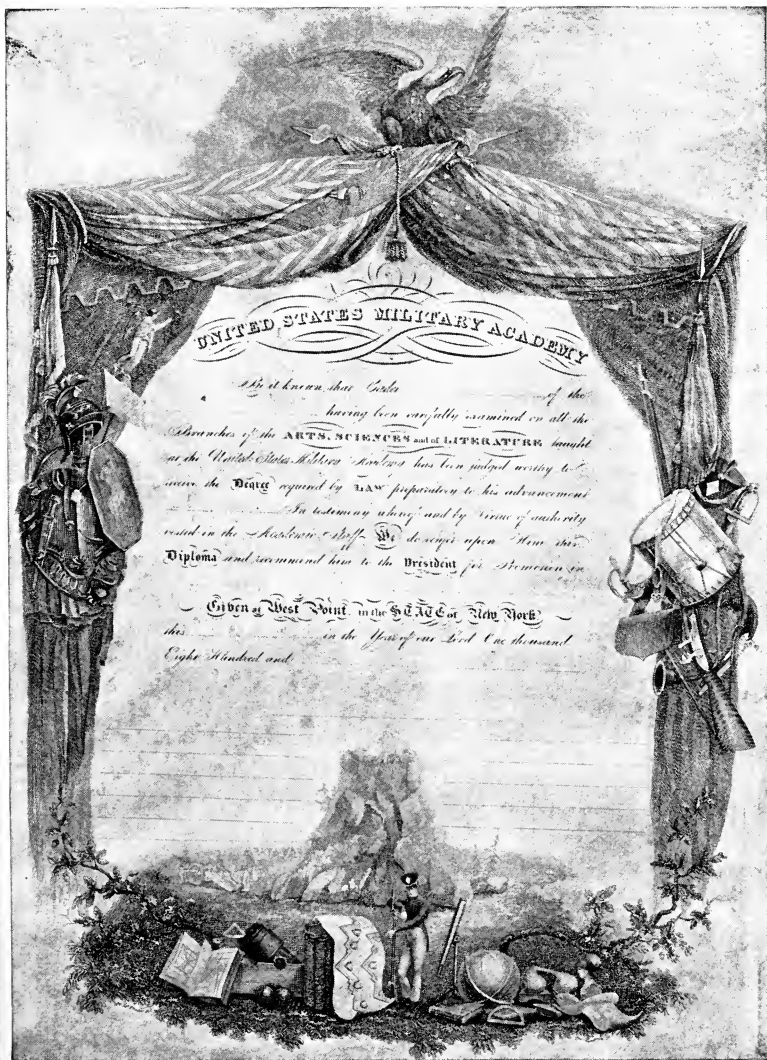 UNITED STATES MILITARY ACADEMY
Be it known, that Cadet of the
having been carefully examined on all the
Branches of the ARTS, SCIENCES and of LITERATURE taught
at the United States Military Academy has been judged worthy to
receive the Degree required by LAW preparatory to his advancement
In testimony whereof and by Virtue of authority
vested in the Academic Staff We do confer upon Him this
Diploma and recommend him to the President for Promotion in
Given at West Point in the STATE of New York
this in the Year of our Lord One thousand
Eight Hundred and